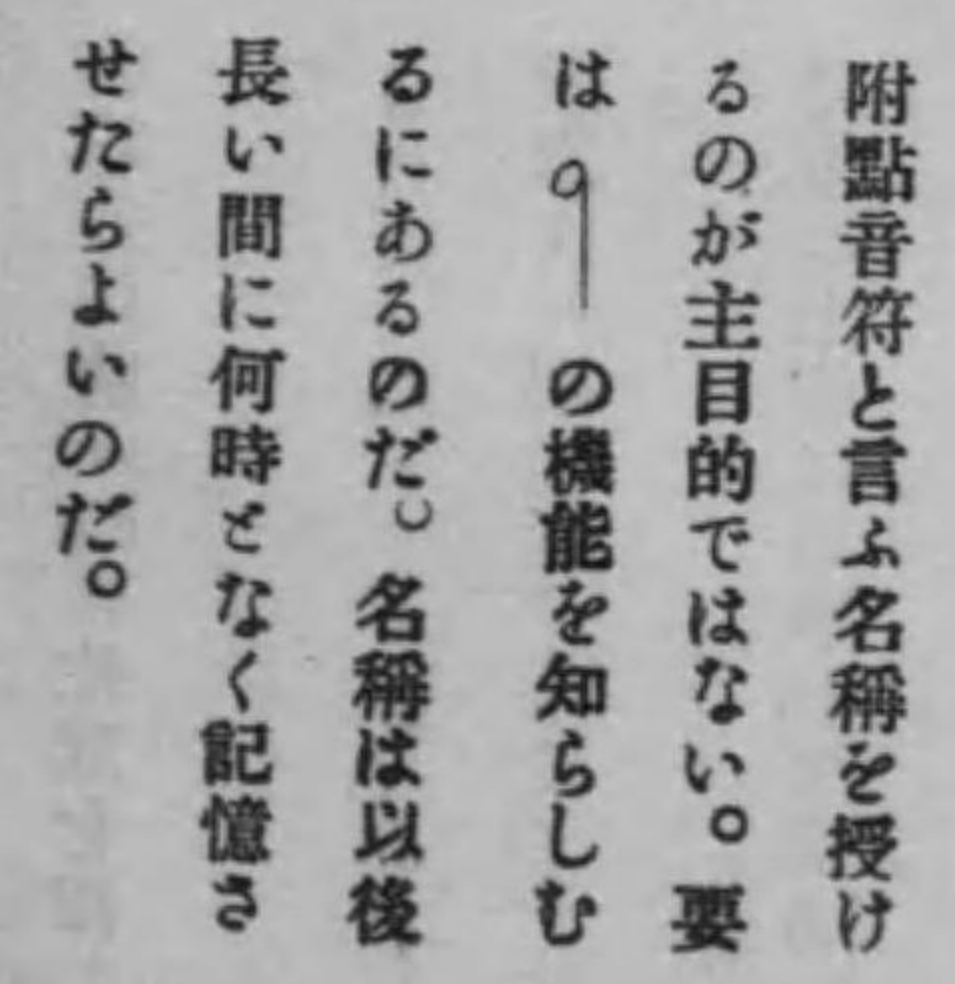 附點音符と言ふ名稱を授け
るのが主目的ではない。要
は の機能を知らしむ
るにあるのだ。名稱は以後
長い間に何時となく記憶さ
せたらよいのだ。